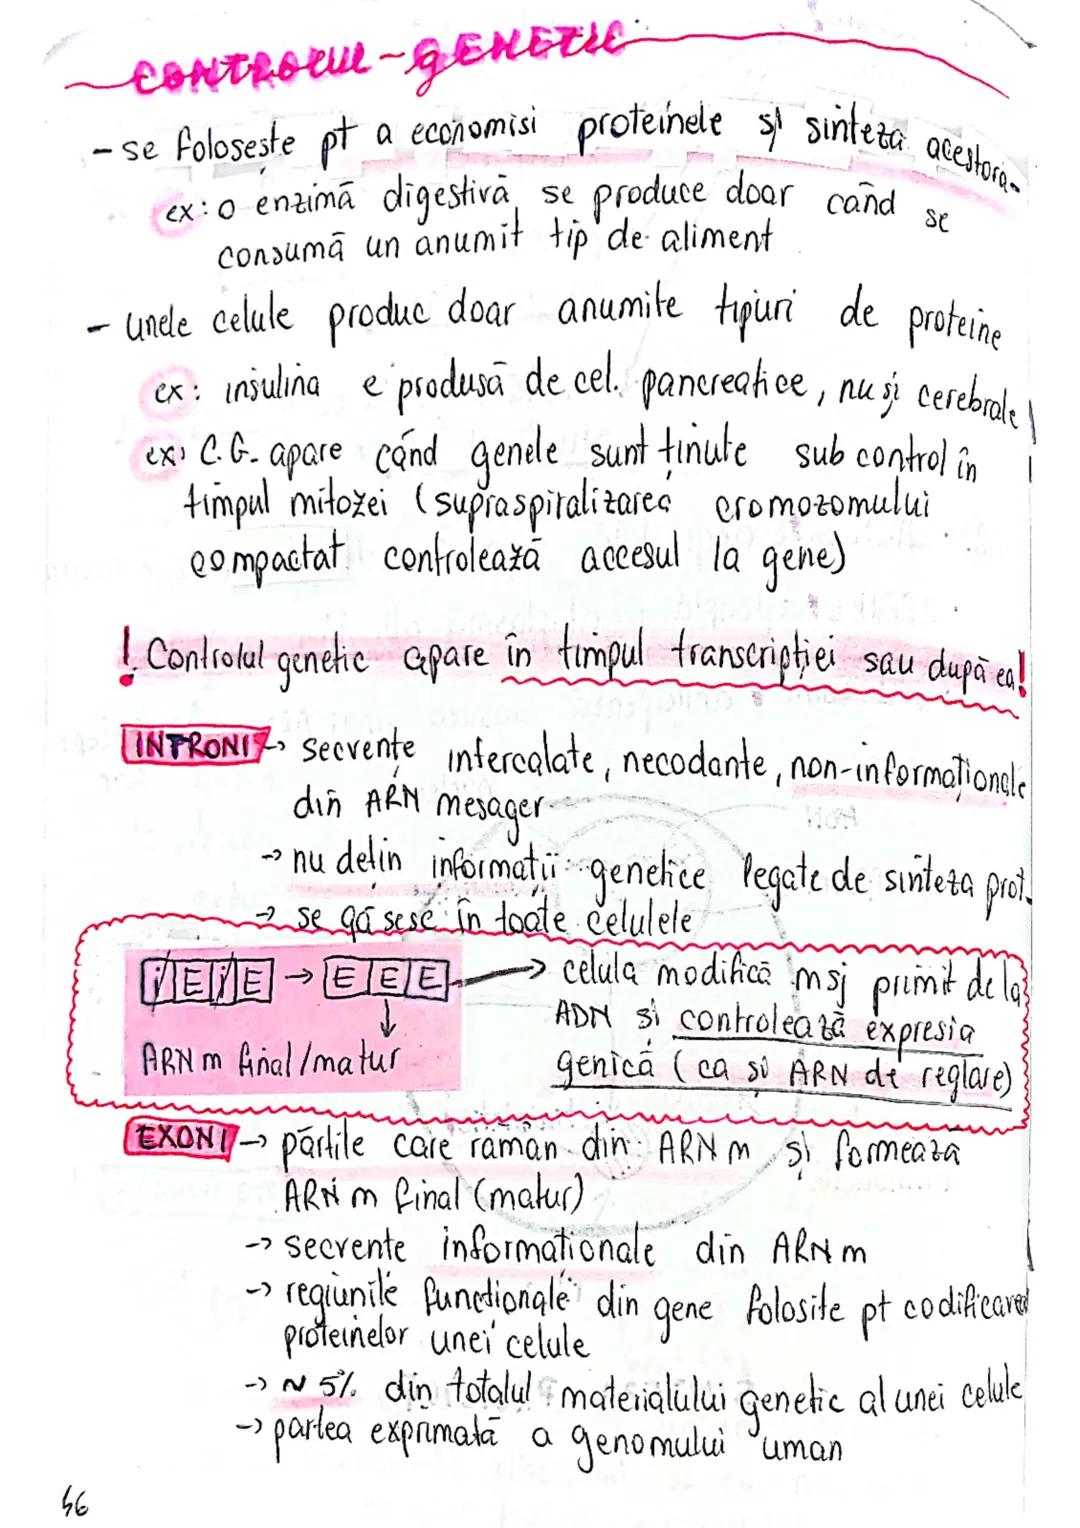 CONTROLUL-GENETIC
- se folosește pt a economisi proteinele și sinteza acestora.
ex: o enzimă digestivă se produce doar când se
consumă un anumit tip de aliment
- unele celule produc doar anumite tipuri de proteine
ex: insulina e produsă de cel. pancreatice, nu și cerebrale
ex: C.G. apare când genele sunt ținute sub control în
timpul mitozei (supraspiralizarea cromozomului
compactat controlează accesul la gene)
! Controlul genetic apare în timpul transcripției sau după ea!
INTRONI → secvențe intercalate, necodante, non-informaționale
din ARN mesager
→ nu dețin informații genetice legate de sinteza prot.
→ se găsesc în toate celulele
I E I E → E E E → celula modifică msj primit de la
ADN și controlează expresia
ARN m final/matur genică (ca și ARN de reglare)
EXONI → părțile care rămân din ARN m și formează
ARN m final (matur)
→ secvente informaționale din ARN m
→ regiunile funcționale din gene folosite pt codificarea
proteinelor unei celule
→ ~ 5% din totalul materialului genetic al unei celule
→ partea exprimată a genomului uman
46